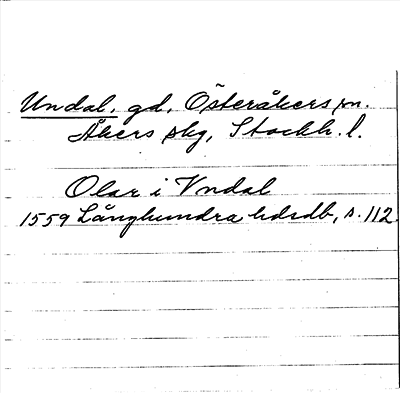 Undal, gd, Österåkers sn.
Åkers skg, Stockh. l.
Olar i Vndal
1559 Långhundra hdsdb, s. 112